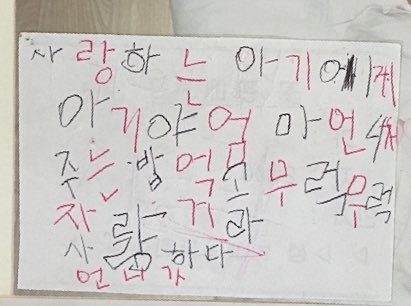 사랑하는 아기에게
아기야는 어마언
주는 밥 억고 무럭무럭
자라거라
사랑한다
언니가